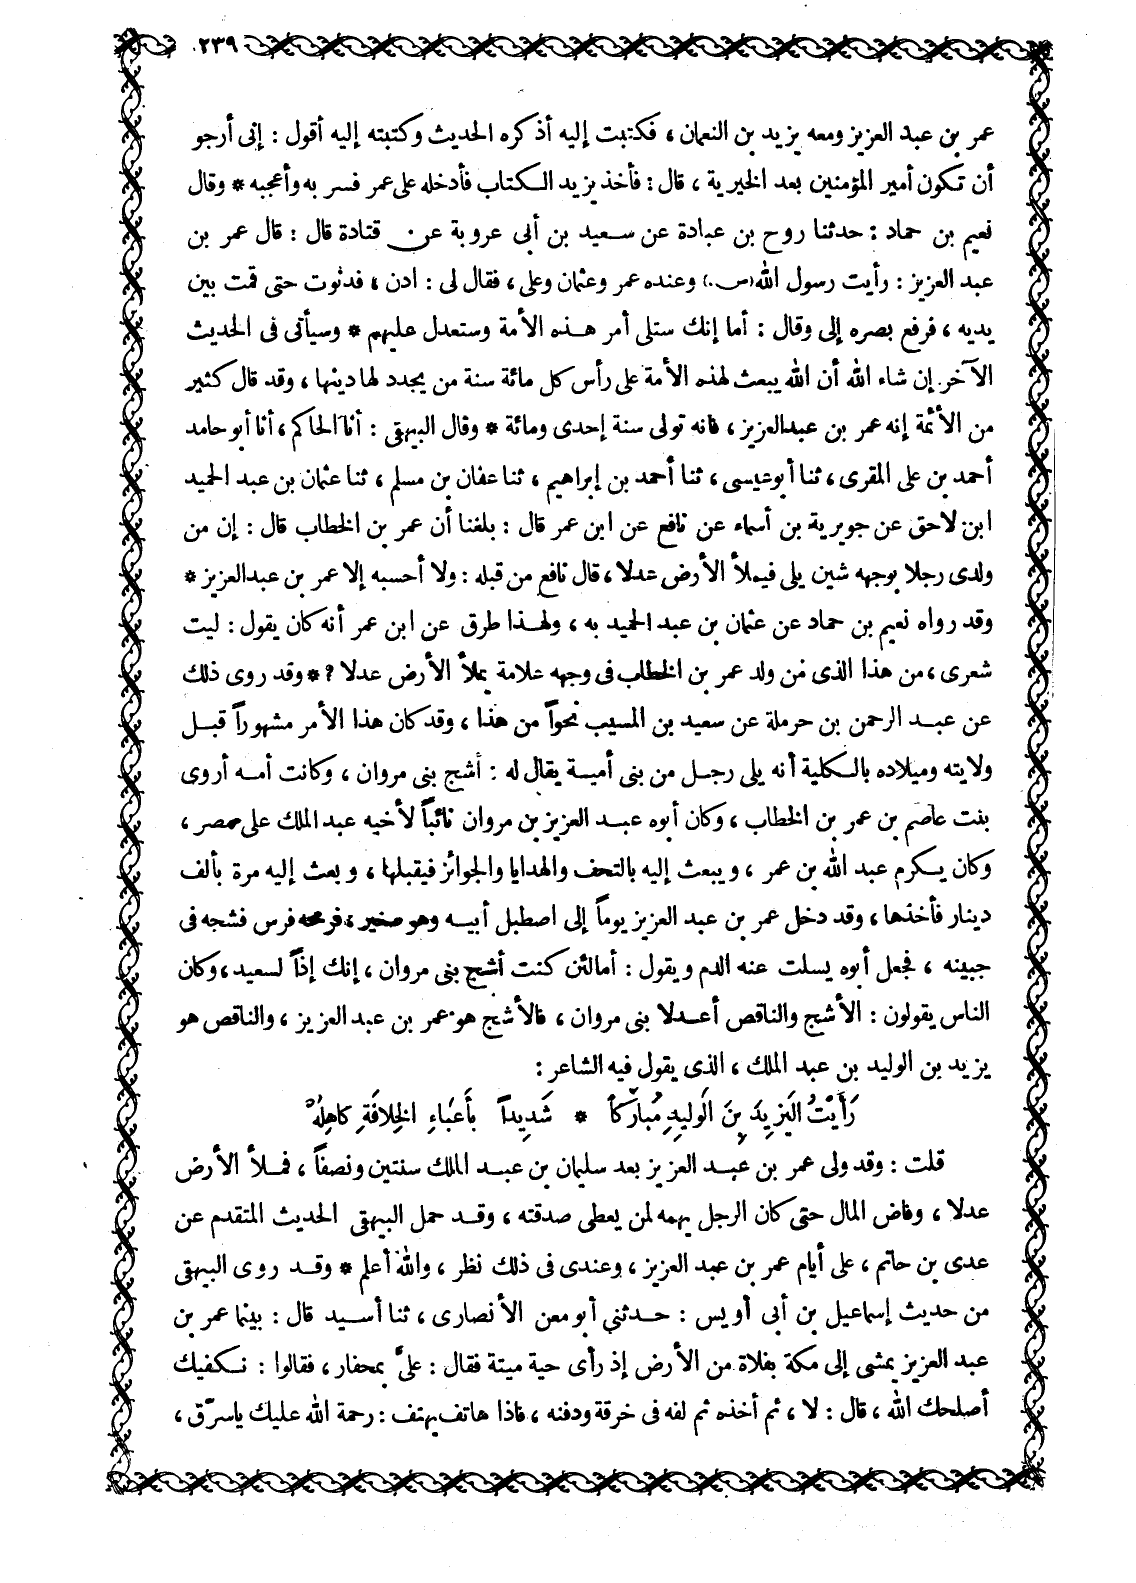 ٢٣٩
عمر بن عبد العزيز ومعه يزيد بن النعمان ، فكتبت إليه أذكره الحديث وكتبته إليه أقول : إنى أرجو
أن تكون أمير المؤمنين بعد الخيرية ، قال : فأخذ يزيد الكتاب فأدخله على عمر فسر به وأعجبه * وقال
نعيم بن حماد : حدثنا روح بن عبادة عن سعيد بن أبى عروبة عن قتادة قال : قال عمر بن
عبد العزيز : رأيت رسول الله (س.) وعنده عمر وعثمان وعلى ، فقال لى : ادن ، فدنوت حتى قمت بين
يديه ، فرفع بصره إلى وقال : أما إنك ستلى أمر هذه الأمة وستعدل عليهم * وسيأتى فى الحديث
الآخر إن شاء الله أن الله يبعث لهذه الأمة على رأس كل مائة سنة من يجدد لها دينها ، وقد قال كثير
من الأئمة إنه عمر بن عبدالعزيز ، فانه تولى سنة إحدى ومائة * وقال البيهقى : أنا الحاكم ، أنا أبو حامد
أحمد بن على المقرى ، ثنا أبوعيسى ، ثنا أحمد بن إبراهيم ، ثنا عفان بن مسلم ، ثنا عثمان بن عبد الحميد
ابن لاحق عن جويرية بن أسماء عن نافع عن ابن عمر قال : بلغنا أن عمر بن الخطاب قال : إن من
ولدى رجلا بوجهه شين يلى فيملأ الأرض عدلا ، قال نافع من قبله : ولا أحسبه إلا عمر بن عبدالعزيز *
وقد رواه نعيم بن حماد عن عثمان بن عبد الحميد به ، ولهذا طرق عن ابن عمر أنه كان يقول : ليت
شعرى ، من هذا الذى من ولد عمر بن الخطاب فى وجهه علامة يملأ الأرض عدلا ? * وقد روى ذلك
عن عبد الرحمن بن حرملة عن سعيد بن المسيب نحواً من هذا ، وقد كان هذا الأمر مشهوراً قبل
ولايته وميلاده بالكلية أنه يلى رجل من بنى أمية يقال له : أشج بنى مروان ، وكانت أمه أروى
بنت عاصم بن عمر بن الخطاب ، وكان أبوه عبد العزيز بن مروان نائباً لأخيه عبد الملك على مصر ،
وكان يكرم عبد الله بن عمر ، ويبعث إليه بالتحف والهدايا والجوائز فيقبلها ، وبعث إليه مرة بألف
دينار فأخذها ، وقد دخل عمر بن عبد العزيز يوماً إلى اصطبل أبيه وهو صغير ، فرمحه فرس فشجه فى
جبينه ، فجعل أبوه يسلت عنه الدم ويقول : أمالئن كنت أشج بنى مروان ، إنك إذاً لسعيد ، وكان
الناس يقولون : الأشج والناقص أعدلا بنى مروان ، فالأشج هو عمر بن عبد العزيز ، والناقص هو
يزيد بن الوليد بن عبد الملك ، الذى يقول فيه الشاعر :
رَأَيْتُ اليَزِيدَ بِنَ الْوَلِيدِ مُبَارَكاً * شَدِيداً بِأَعْبَاءِ الخِلَافَةِ كَاهِلُهْ
قلت : وقد ولى عمر بن عبد العزيز بعد سليمان بن عبد الملك سنتين ونصفاً ، فملأ الأرض
عدلا ، وفاض المال حتى كان الرجل يهمه لمن يعطى صدقته ، وقد حمل البيهقى الحديث المتقدم عن
عدى بن حاتم ، على أيام عمر بن عبد العزيز ، وعندى فى ذلك نظر ، والله أعلم * وقد روى البيهقى
من حديث إسماعيل بن أبى أويس : حدثنى أبو معن الأنصارى ، ثنا أسيد قال : بينما عمر بن
عبد العزيز يمشى إلى مكة بفلاة من الأرض إذ رأى حية ميتة فقال : علىَّ بمحفار ، فقالوا : نكفيك
أصلحك الله ، قال : لا ، ثم أخذه ثم لفه فى خرقة ودفنه ، فاذا هاتف يهتف : رحمة الله عليك ياسرّق ،